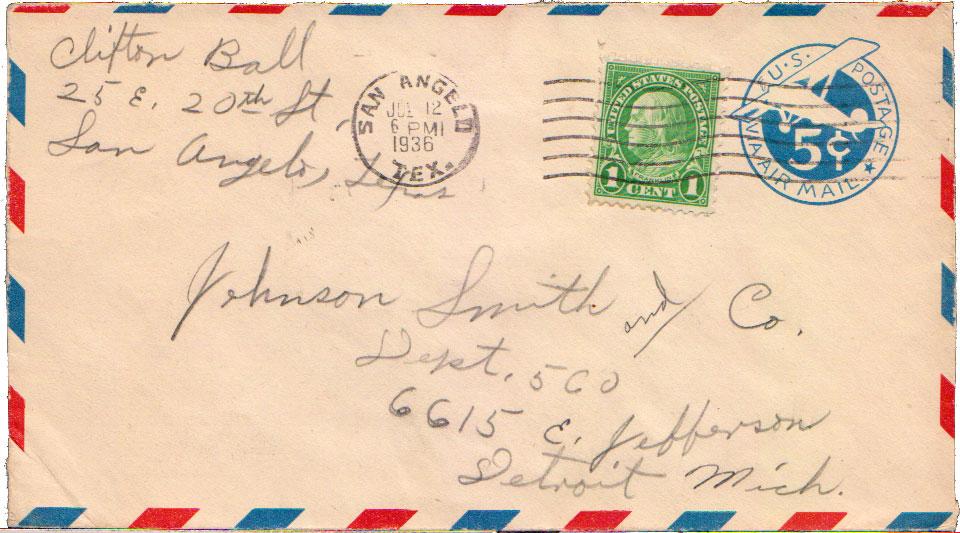 Clifton Ball
25 E. 20th St.
San Angelo, Texas
SAN ANGELO
JUL 12
6 PM
1936
TEX.
UNITED STATES POSTAGE
1 CENT 1
U.S. POSTAGE
5¢
VIA AIR MAIL
Johnson Smith and Co.
Dept. 560
6615 E. Jefferson
Detroit Mich.